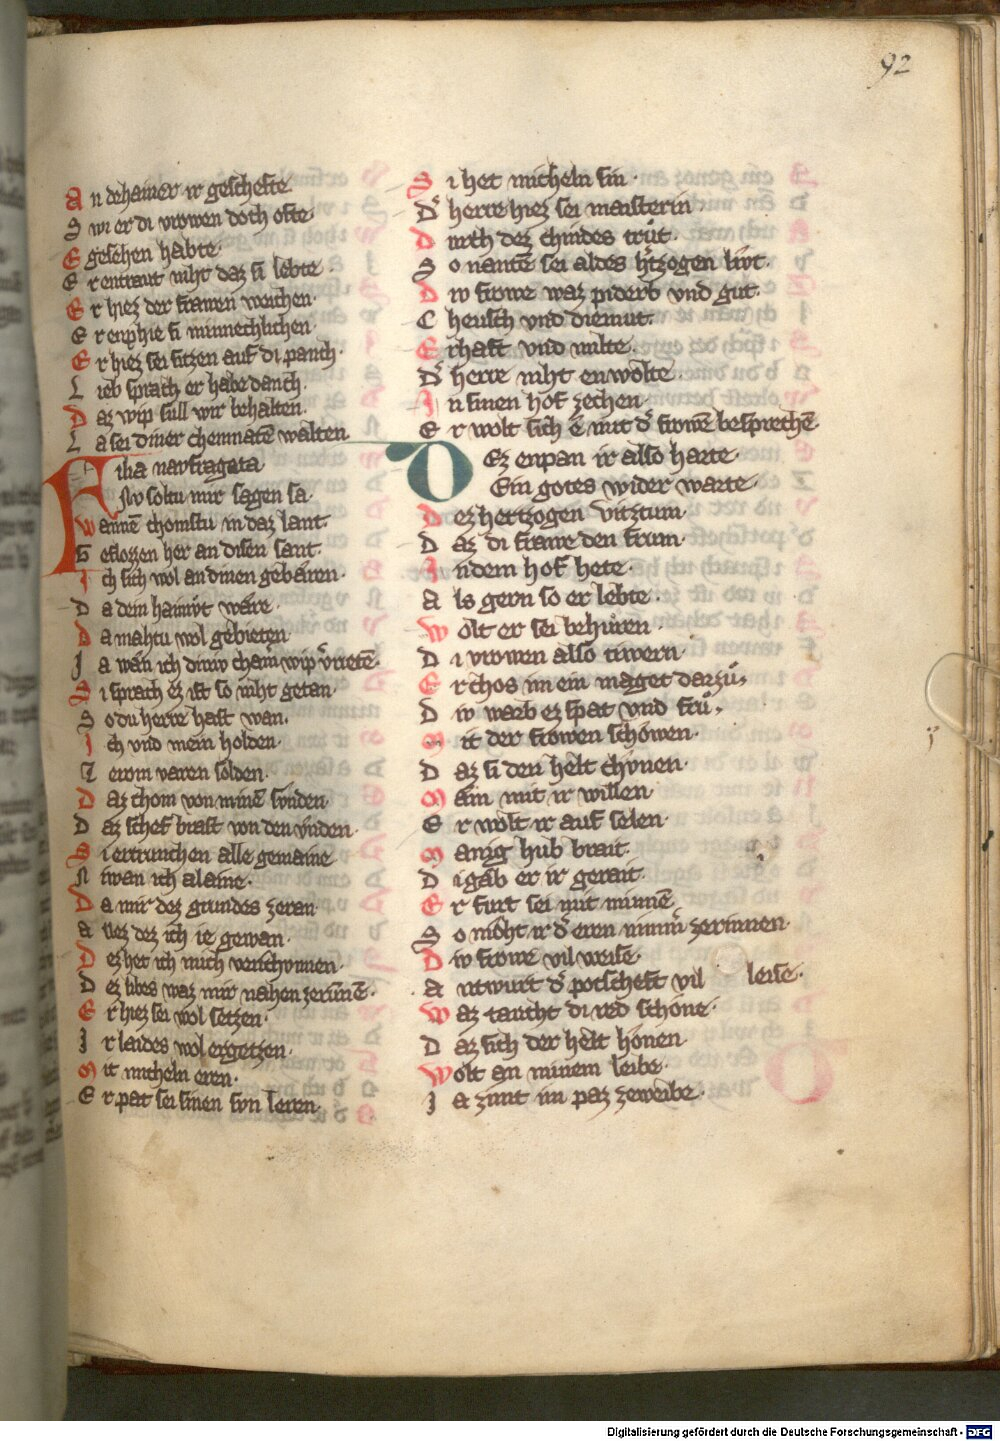 92
An dehainer ir geschefte
Swi er di vrowen doch ofte
Egesehen habte·
Er entraut niht daz si lebte·
Er hiez der frawen weichen·
Er enphie si minnechlichen·
Er hiez sei sitzen auf di panch·
Lieb sprach er habe danch·
Daz wip sull wir behalten·
La sei diner chemnatē walten
Filia naufragata
Nv soltu mir sagen sa·
Wannē chomstu in daz lant·
Geflozzen her an disen sant·
Ich sich wol an dinen gebären·
Da dein haimvt wäre·
Da mahtu wol gebieten
Ja wän ich
Si sprach ez ist so niht getan·
So du herre hast wan·
Ich vnd mein holden·
Ze rom varen solden·
Daz chom von minē svnden·
Daz schef brast von den vnden·
Di ertrunchen alle gemaine
Niwan ich alaine·
Da mir dez grundes zeran·
Avez dez ich ie gewan·
Dez het ich mich verschvnnen·
Dez libes waz mir nahen zerunnē·
Er hiez sei wol setzen·
Ir laides wol ergetzen·
Mit micheln eren·
Er pat sei sinen svn leren·
Si het micheln sin·
D' herre hiez sei maisterin
Durch dez chindes trůt·
So nantē sei aldes h'tzogen livt·
Div frowe waz piderb vnd gut·
Cheusch vnd diemut·
Erhaft vnd milte·
D' herre niht enwolte·
In sinen hof zechen·
Er wolt sich ē mit d' frowē besprechē
Dez enpan ir also harte·
Ein gotes wider warte·
Dez hertzogen vitztum·
Daz di frawe den frum·
In dem hof hete·
Als gern so er lebte·
Wolt er sei behuren·
Di vrowen also tiwern·
Er chos im ein maget darzů·
Div warb ez spat vnd frů·
Mit der frowen schöwen·
Daz si den helt chvnen·
Næm mit ir willen·
Er wolt ir auf selen·
Manig hub brait·
Di gab er ir gerait·
Er furt sei mit minnē·
So möht ir d' eren nimm' zerinnen·
Div frowe vil weise·
Antwurt d' potscheft vil leise·
Waz taucht di red schöne·
Daz sich der helt hönen·
Wolt an minem leibe·
Ja zimt im paz zeweibe·
Digitalisierung gefördert durch die Deutsche Forschungsgemeinschaft - DFG